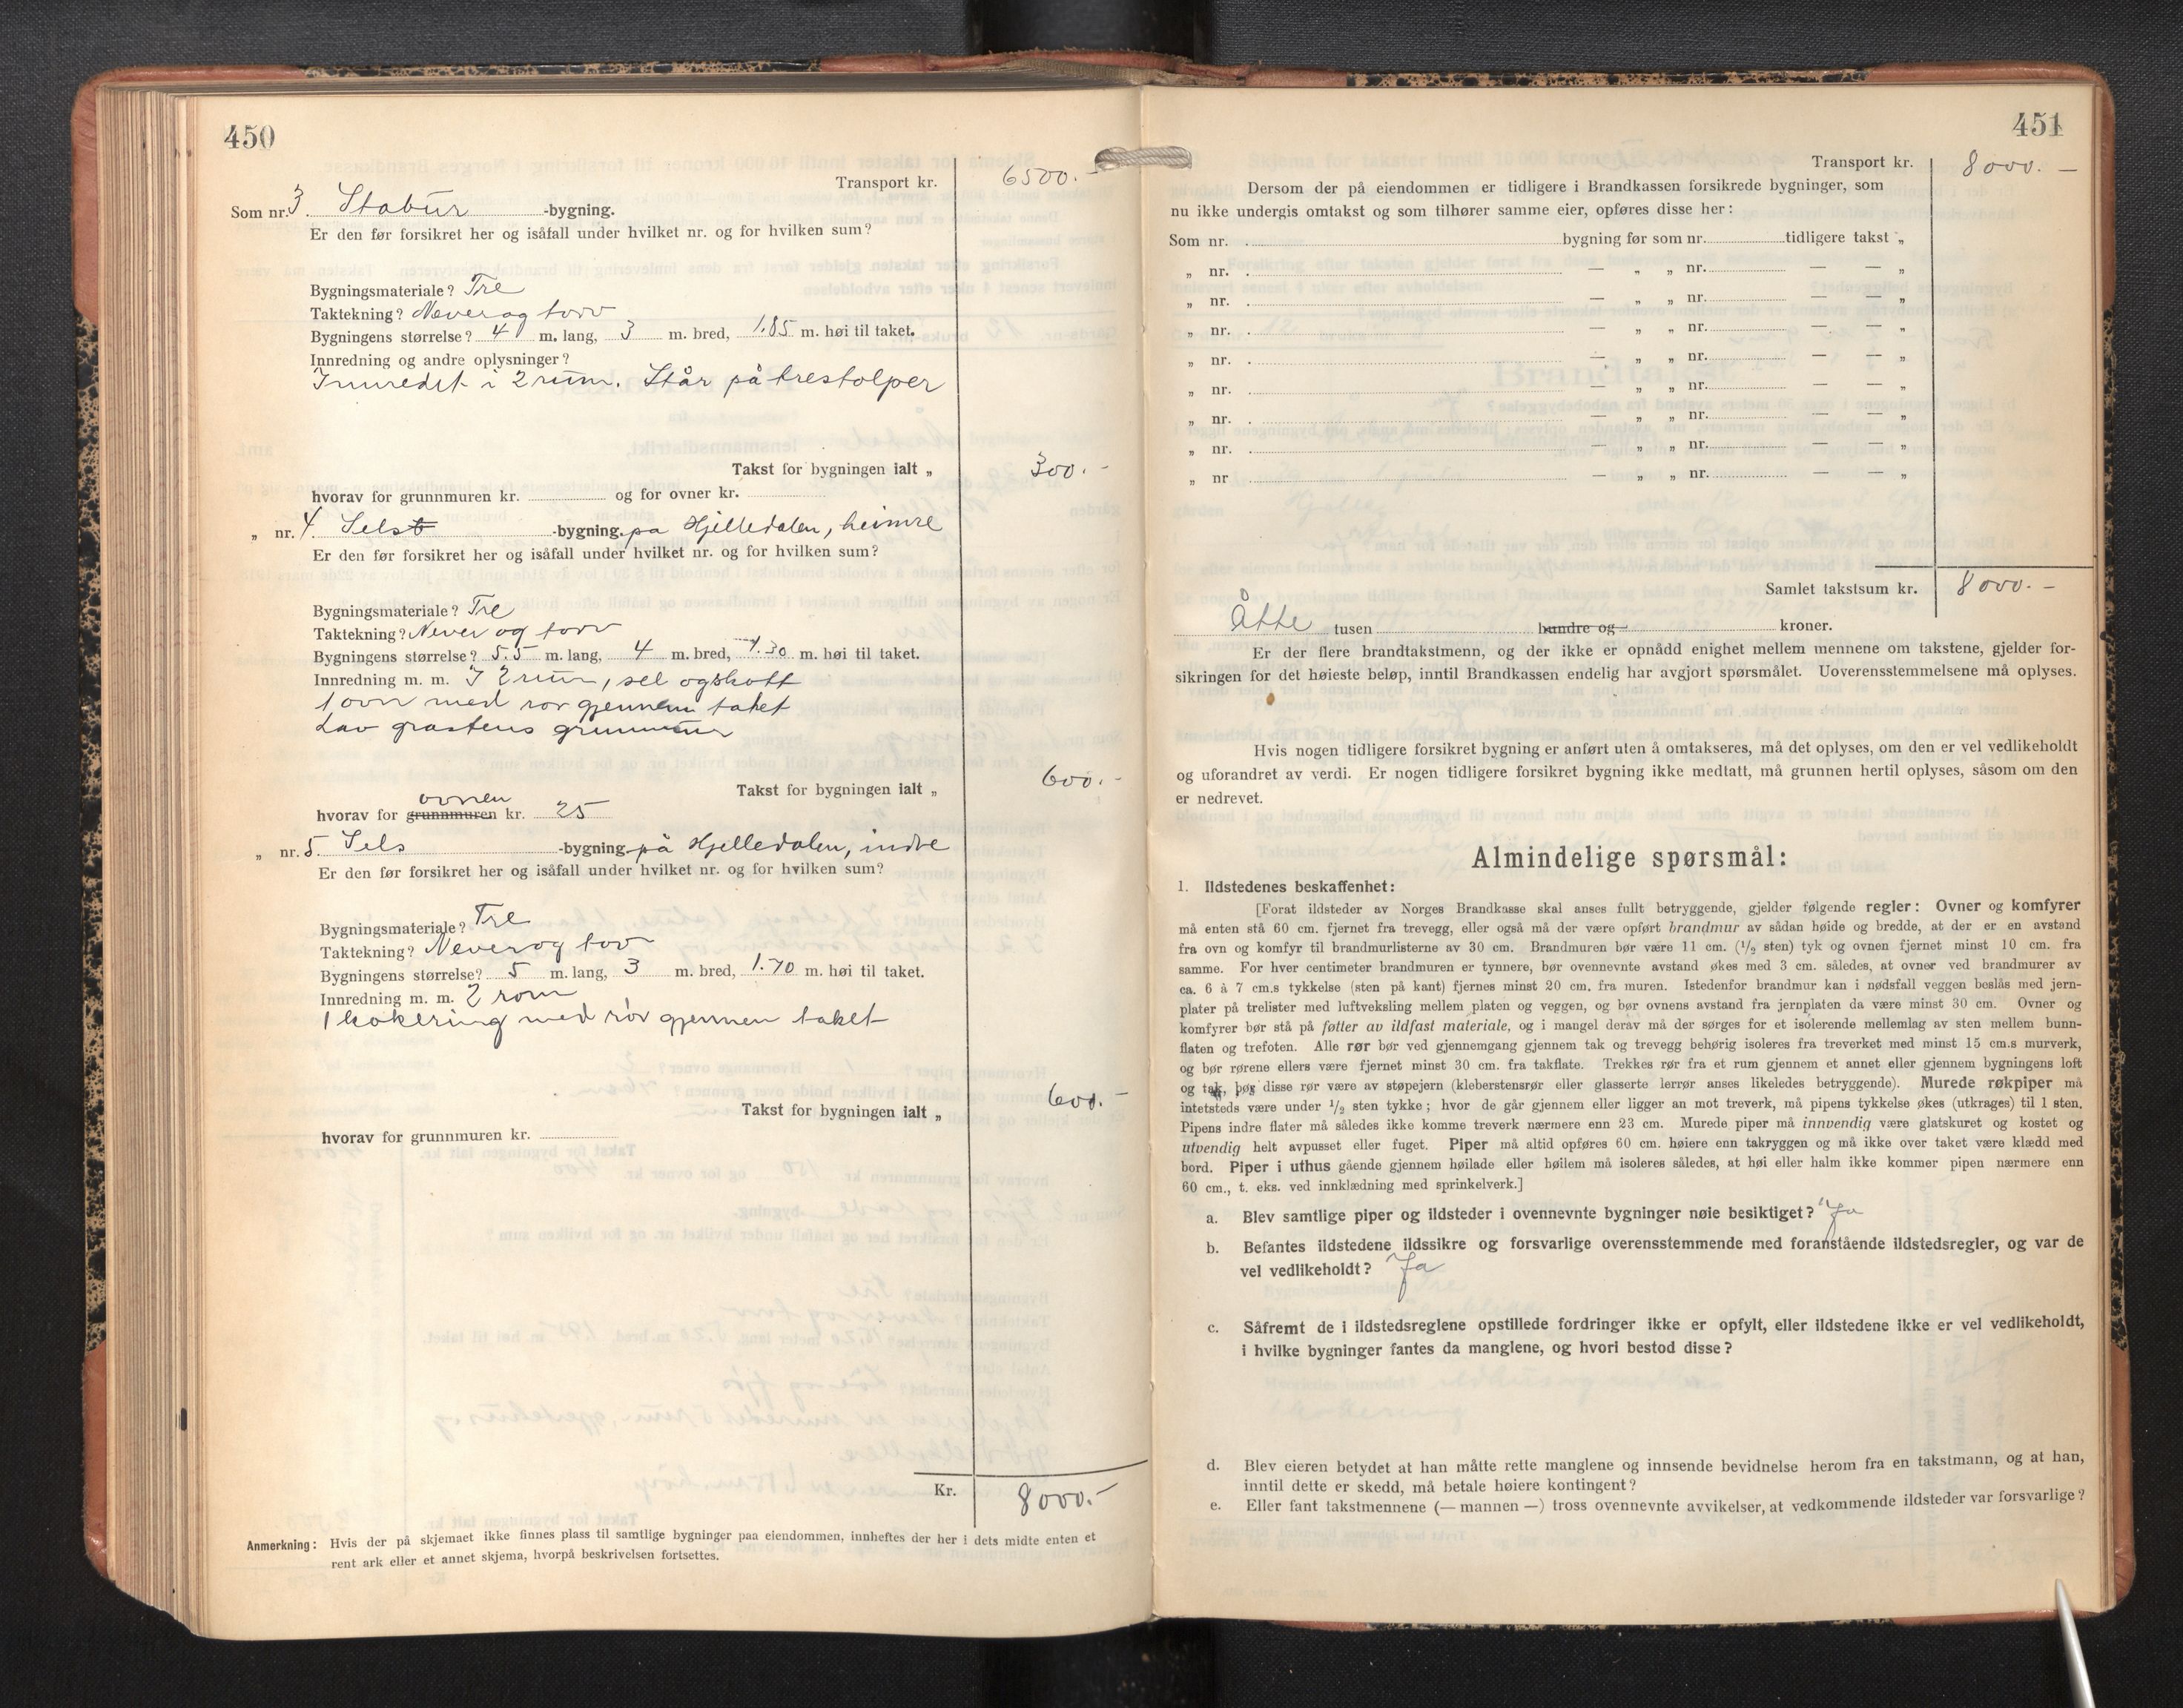 450
Transport kr. 6500.-
Som nr. 3. Stabur -bygning.
Er den før forsikret her og isåfall under hvilket nr. og for hvilken sum?
Bygningsmateriale? Tre
Taktekning? Never og torv
Bygningens størrelse? 4 m. lang, 3 m. bred, 1.85 m. høi til taket.
Innredning og andre oplysninger?
Innredet i 2 rum. Står på trestolper
Takst for bygningen ialt „ 300.-
hvorav for grunnmuren kr. og for ovner kr.
„ nr. 4 Sels -bygning. på Hjelledalen, heimre
Er den før forsikret her og isåfall under hvilket nr. og for hvilken sum?
Bygningsmateriale? Tre
Taktekning? Never og torv
Bygningens størrelse? 5.5 m. lang, 4 m. bred, 1.30 m. høi til taket.
Innredning m. m. I 2 rum, sel og skott
1 ovn med rør gjennem taket
Lav grastens grunnmur
Takst for bygningen ialt „ 600.-
ovnen
hvorav for grunnmuren kr. 25
„ nr. 5. Sels -bygning på Hjelledalen, indre
Er den før forsikret her og isåfall under hvilket nr. og for hvilken sum?
Bygningsmateriale? Tre
Taktekning? Never og torv
Bygningens størrelse? 5 m. lang, 3 m. bred, 1.70 m. høi til taket.
Innredning m. m. 2 rom
1 kokering med rør gjennem taket
Takst for bygningen ialt „ 600.-
hvorav for grunnmuren kr.
Kr. 8000.-
Anmerkning: Hvis der på skjemaet ikke finnes plass til samtlige bygninger paa eiendommen, innheftes der her i dets midte enten et
rent ark eller et annet skjema, hvorpå beskrivelsen fortsettes.
451
Transport kr. 8000.-
Dersom der på eiendommen er tidligere i Brandkassen forsikrede bygninger, som
nu ikke undergis omtakst og som tilhører samme eier, opføres disse her:
Som nr. bygning før som nr. tidligere takst „
„ nr. — „ „ nr. — — „
„ nr. — „ „ nr. — — „
„ nr. — „ „ nr. — — „
„ nr. — „ „ nr. — — „
„ nr. — „ „ nr. — — „
„ nr. — „ „ nr. — — „
„ nr. — „ „ nr. — — „
„ nr — „ „ nr. — — „
Samlet takstsum kr. 8000.-
Åtte tusen hundre og kroner.
Er der flere brandtakstmenn, og der ikke er opnådd enighet mellem mennene om takstene, gjelder for-
sikringen for det høieste beløp, inntil Brandkassen endelig har avgjort spørsmålet. Uoverensstemmelsene må oplyses.
Hvis nogen tidligere forsikret bygning er anført uten å omtakseres, må det oplyses, om den er vel vedlikeholdt
og uforandret av verdi. Er nogen tidligere forsikret bygning ikke medtatt, må grunnen hertil oplyses, såsom om den
er nedrevet.
Almindelige spørsmål:
1. Ildstedenes beskaffenhet:
[Forat ildsteder av Norges Brandkasse skal anses fullt betryggende, gjelder følgende regler: Ovner og komfyrer
må enten stå 60 cm. fjernet fra trevegg, eller også må der være opført brandmur av sådan høide og bredde, at der er en avstand
fra ovn og komfyr til brandmurlisterne av 30 cm. Brandmuren bør være 11 cm. (1/2 sten) tyk og ovnen fjernet minst 10 cm. fra
samme. For hver centimeter brandmuren er tynnere, bør ovennevnte avstand økes med 3 cm. således, at ovner ved brandmurer av
ca. 6 à 7 cm.s tykkelse (sten på kant) fjernes minst 20 cm. fra muren. Istedenfor brandmur kan i nødsfall veggen beslås med jern-
plater på trelister med luftveksling mellem platen og veggen, og bør ovnens avstand fra jernplaten da være minst 30 cm. Ovner og
komfyrer bør stå på føtter av ildfast materiale, og i mangel derav må der sørges for et isolerende mellemlag av sten mellem bunn-
flaten og trefoten. Alle rør bør ved gjennemgang gjennem tak og trevegg behørig isoleres fra treverket med minst 15 cm.s murverk,
og bør rørene ellers være fjernet minst 30 cm. fra takflate. Trekkes rør fra et rum gjennem et annet eller gjennem bygningens loft
og tak, bør disse rør være av støpejern (kleberstensrør eller glasserte lerrør anses likeledes betryggende). Murede røkpiper må
intetsteds være under 1/2 sten tykke; hvor de går gjennem eller ligger an mot treverk, må pipens tykkelse økes (utkrages) til 1 sten.
Pipens indre flater må således ikke komme treverk nærmere enn 23 cm. Murede piper må innvendig være glatskuret og kostet og
utvendig helt avpusset eller fuget. Piper må altid opføres 60 cm. høiere enn takryggen og må ikke over taket være klædd med
bord. Piper i uthus gående gjennem høilade eller høilem må isoleres således, at høi eller halm ikke kommer pipen nærmere enn
60 cm., t. eks. ved innklædning med sprinkelverk.]
a. Blev samtlige piper og ildsteder i ovennevnte bygninger nøie besiktiget? Ja
b. Befantes ildstedene ildssikre og forsvarlige overensstemmende med foranstående ildstedsregler, og var de
vel vedlikeholdt? Ja
c. Såfremt de i ildstedsreglene opstillede fordringer ikke er opfylt, eller ildstedene ikke er vel vedlikeholdt,
i hvilke bygninger fantes da manglene, og hvori bestod disse?
d. Blev eieren betydet at han måtte rette manglene og innsende bevidnelse herom fra en takstmann, og at han,
inntil dette er skedd, må betale høiere kontingent?
e. Eller fant takstmennene (— mannen —) tross ovennevnte avvikelser, at vedkommende ildsteder var forsvarlige?